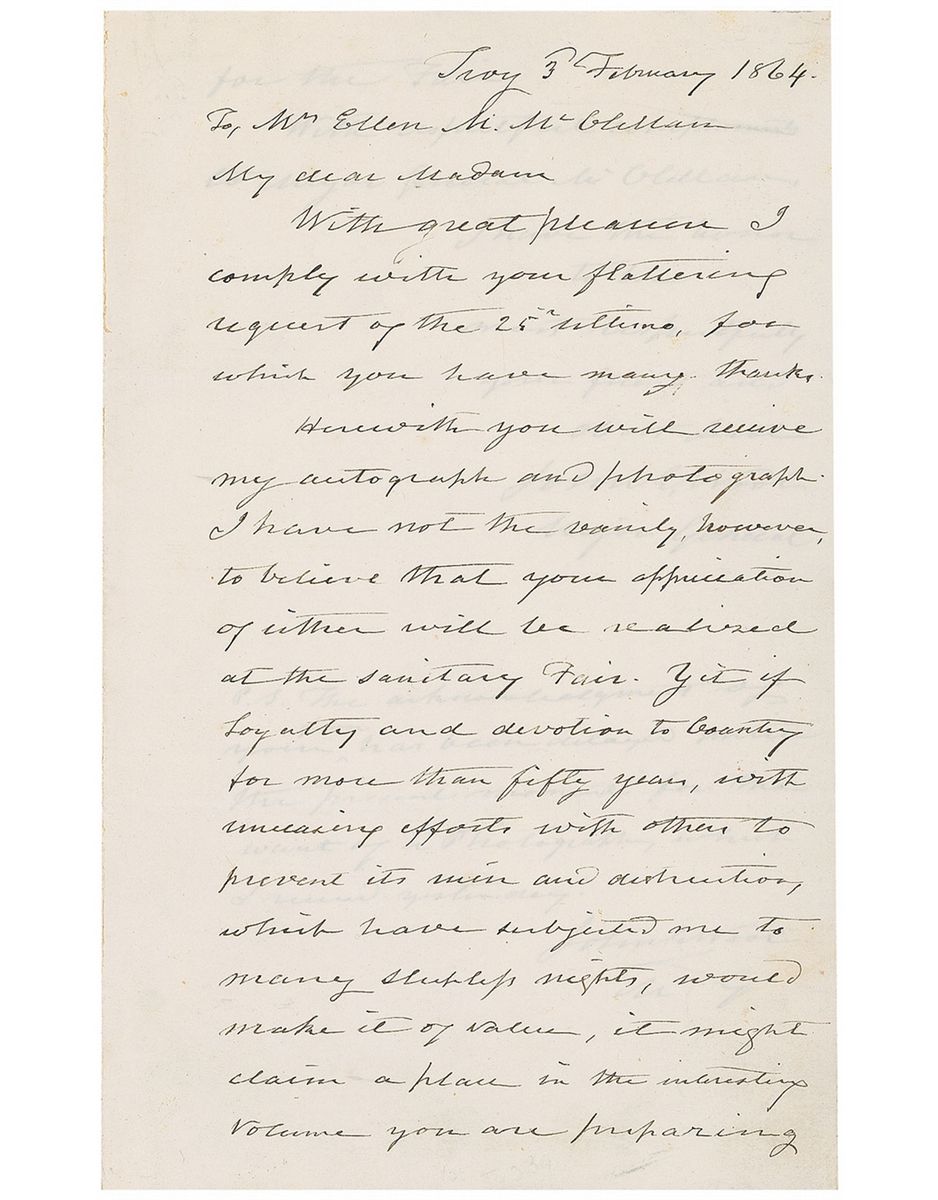 Troy 3d February 1864.
To, Mrs Ellen M. McClellan
My dear Madam
With great pleasure I
comply with your flattering
request of the 25th Ultimo, for
which you have many thanks.
Herewith you will receive
my autograph and photograph.
I have not the vanity, however,
to believe that your appreciation
of either will be realized
at the sanitary Fair. Yet if
Loyalty and devotion to Country
for more than fifty years, with
unceasing efforts with others to
prevent its ruin and distruction,
which have subjected me to
many sleepless nights, would
make it of value, it might
claim a place in the interesting
volume you are preparing